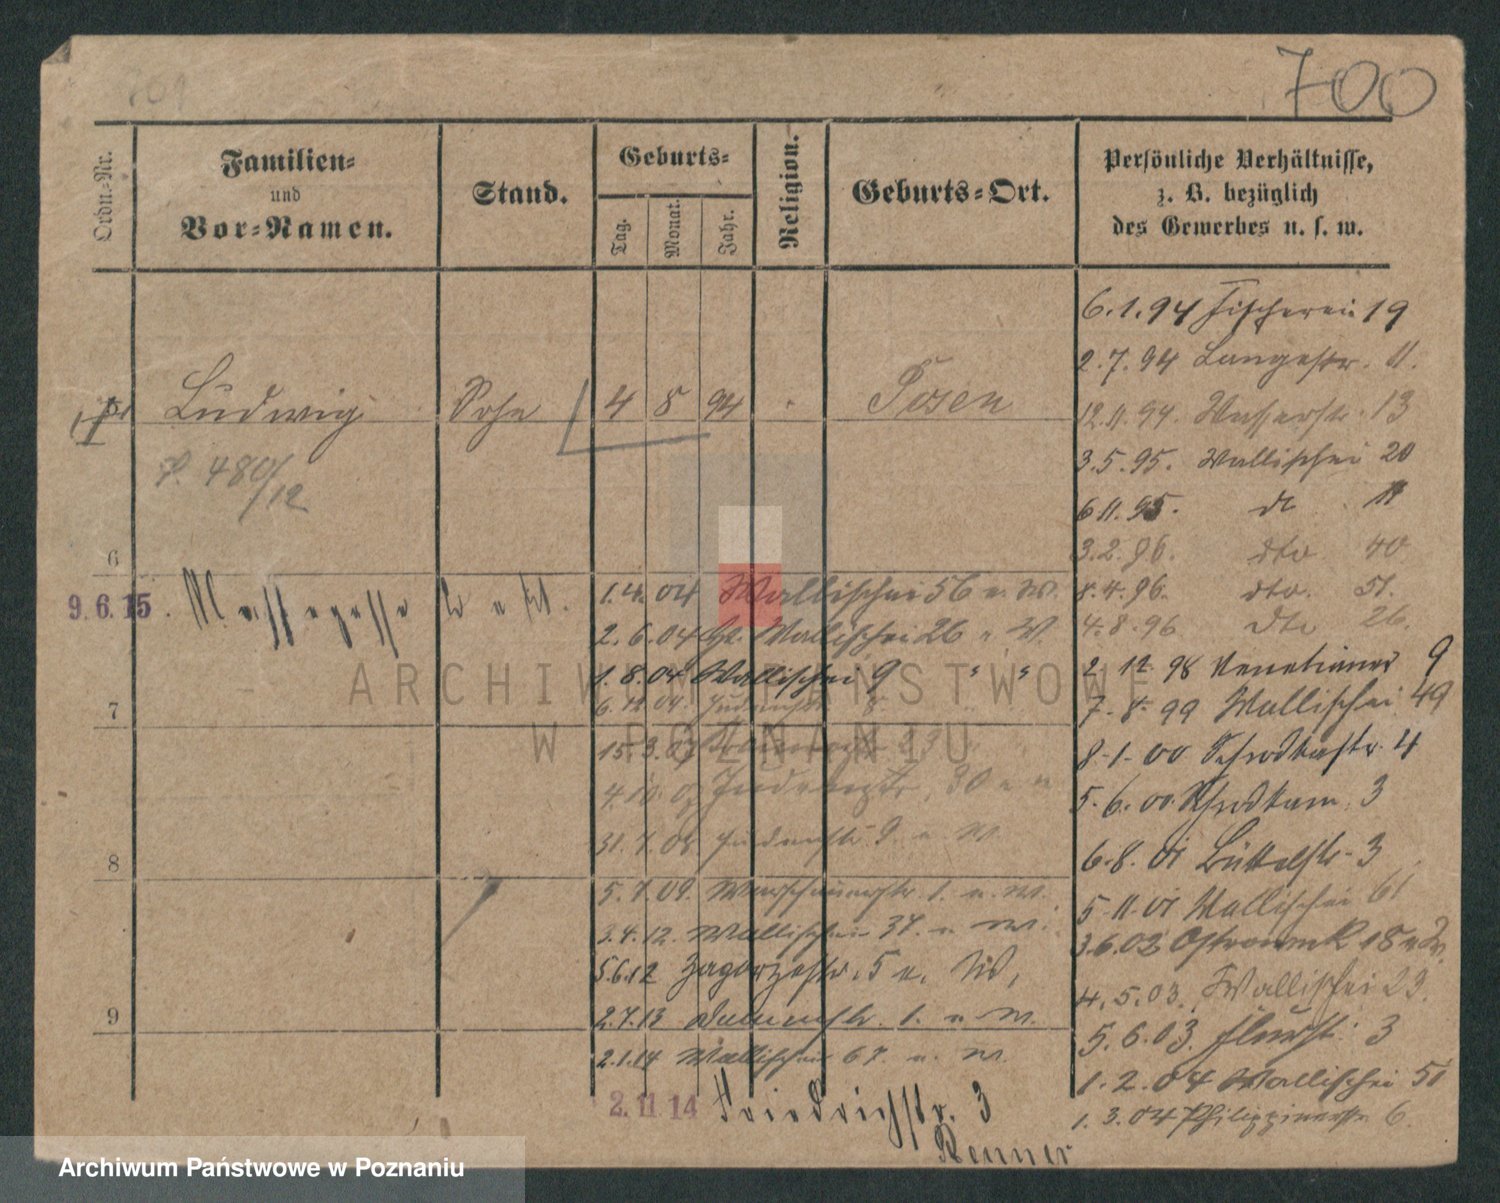 700
Ordn.-Nr.
Familien-
und
Vor-Namen.
Stand.
Geburts-
Tag.
Monat.
Jahr.
Religion.
Geburts-Ort.
Persönliche Verhältnisse,
z. B. bezüglich
des Gewerbes u. s. w.
Ludwig Sohn 4 8 94 Posen
480/12
6
7
8
9
9.6.15.
6.1.94 Fischerei 19
2.7.94 Langestr. 11.
12.11.94. Wasserstr. 13
3.5.95. Wallischei 20
6.11.95. do 11
3.2.96. dto 40
8.4.96. dto. 51.
4.8.96 dto 26.
2.12.98 Venetianer 9
7-8-99 Wallischei 49
8-1-00 Schrodkastr. 4
5.6.00. 3
6.8.01 Büttelstr. 3
5-11-01 Wallischei 61
3.6.02 Ostrowek 18 u. W.
4.5.03. Wallischei 23.
5.6.03. 3
1.2.04 Wallischei 51
1.3.04 Philippinerstr. 6.
1.4.04 Wallischei 56 u. W.
2.6.04 Wallischei 26 u. W.
1.8.04 Wallischei 9 " "
6.12.04. Judenstr. 8.
15.3.07 23
4.10.07 Judenstr. 30 u. w
31.7.08 Judenstr. 9. u. W.
5.7.09. Warschauerstr. 1. u. W.
3.4.12. Wallischei 37. u. W.
5.6.12 Zagorzestr. 5 u. W.
2.7.13 Dammstr. 1. u. W.
2.1.14 Wallischei 67. u. W.
2.11.14 Friedrichstr. 3
Renner
ARCHIWUM PAŃSTWOWE
W POZNANIU
Archiwum Państwowe w Poznaniu